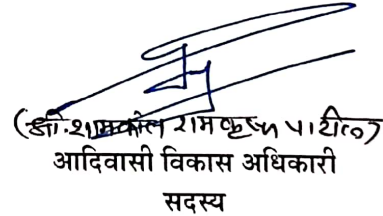 (श्री. शामकांत रामकृष्ण पाटील)
आदिवासी विकास अधिकारी
सदस्य